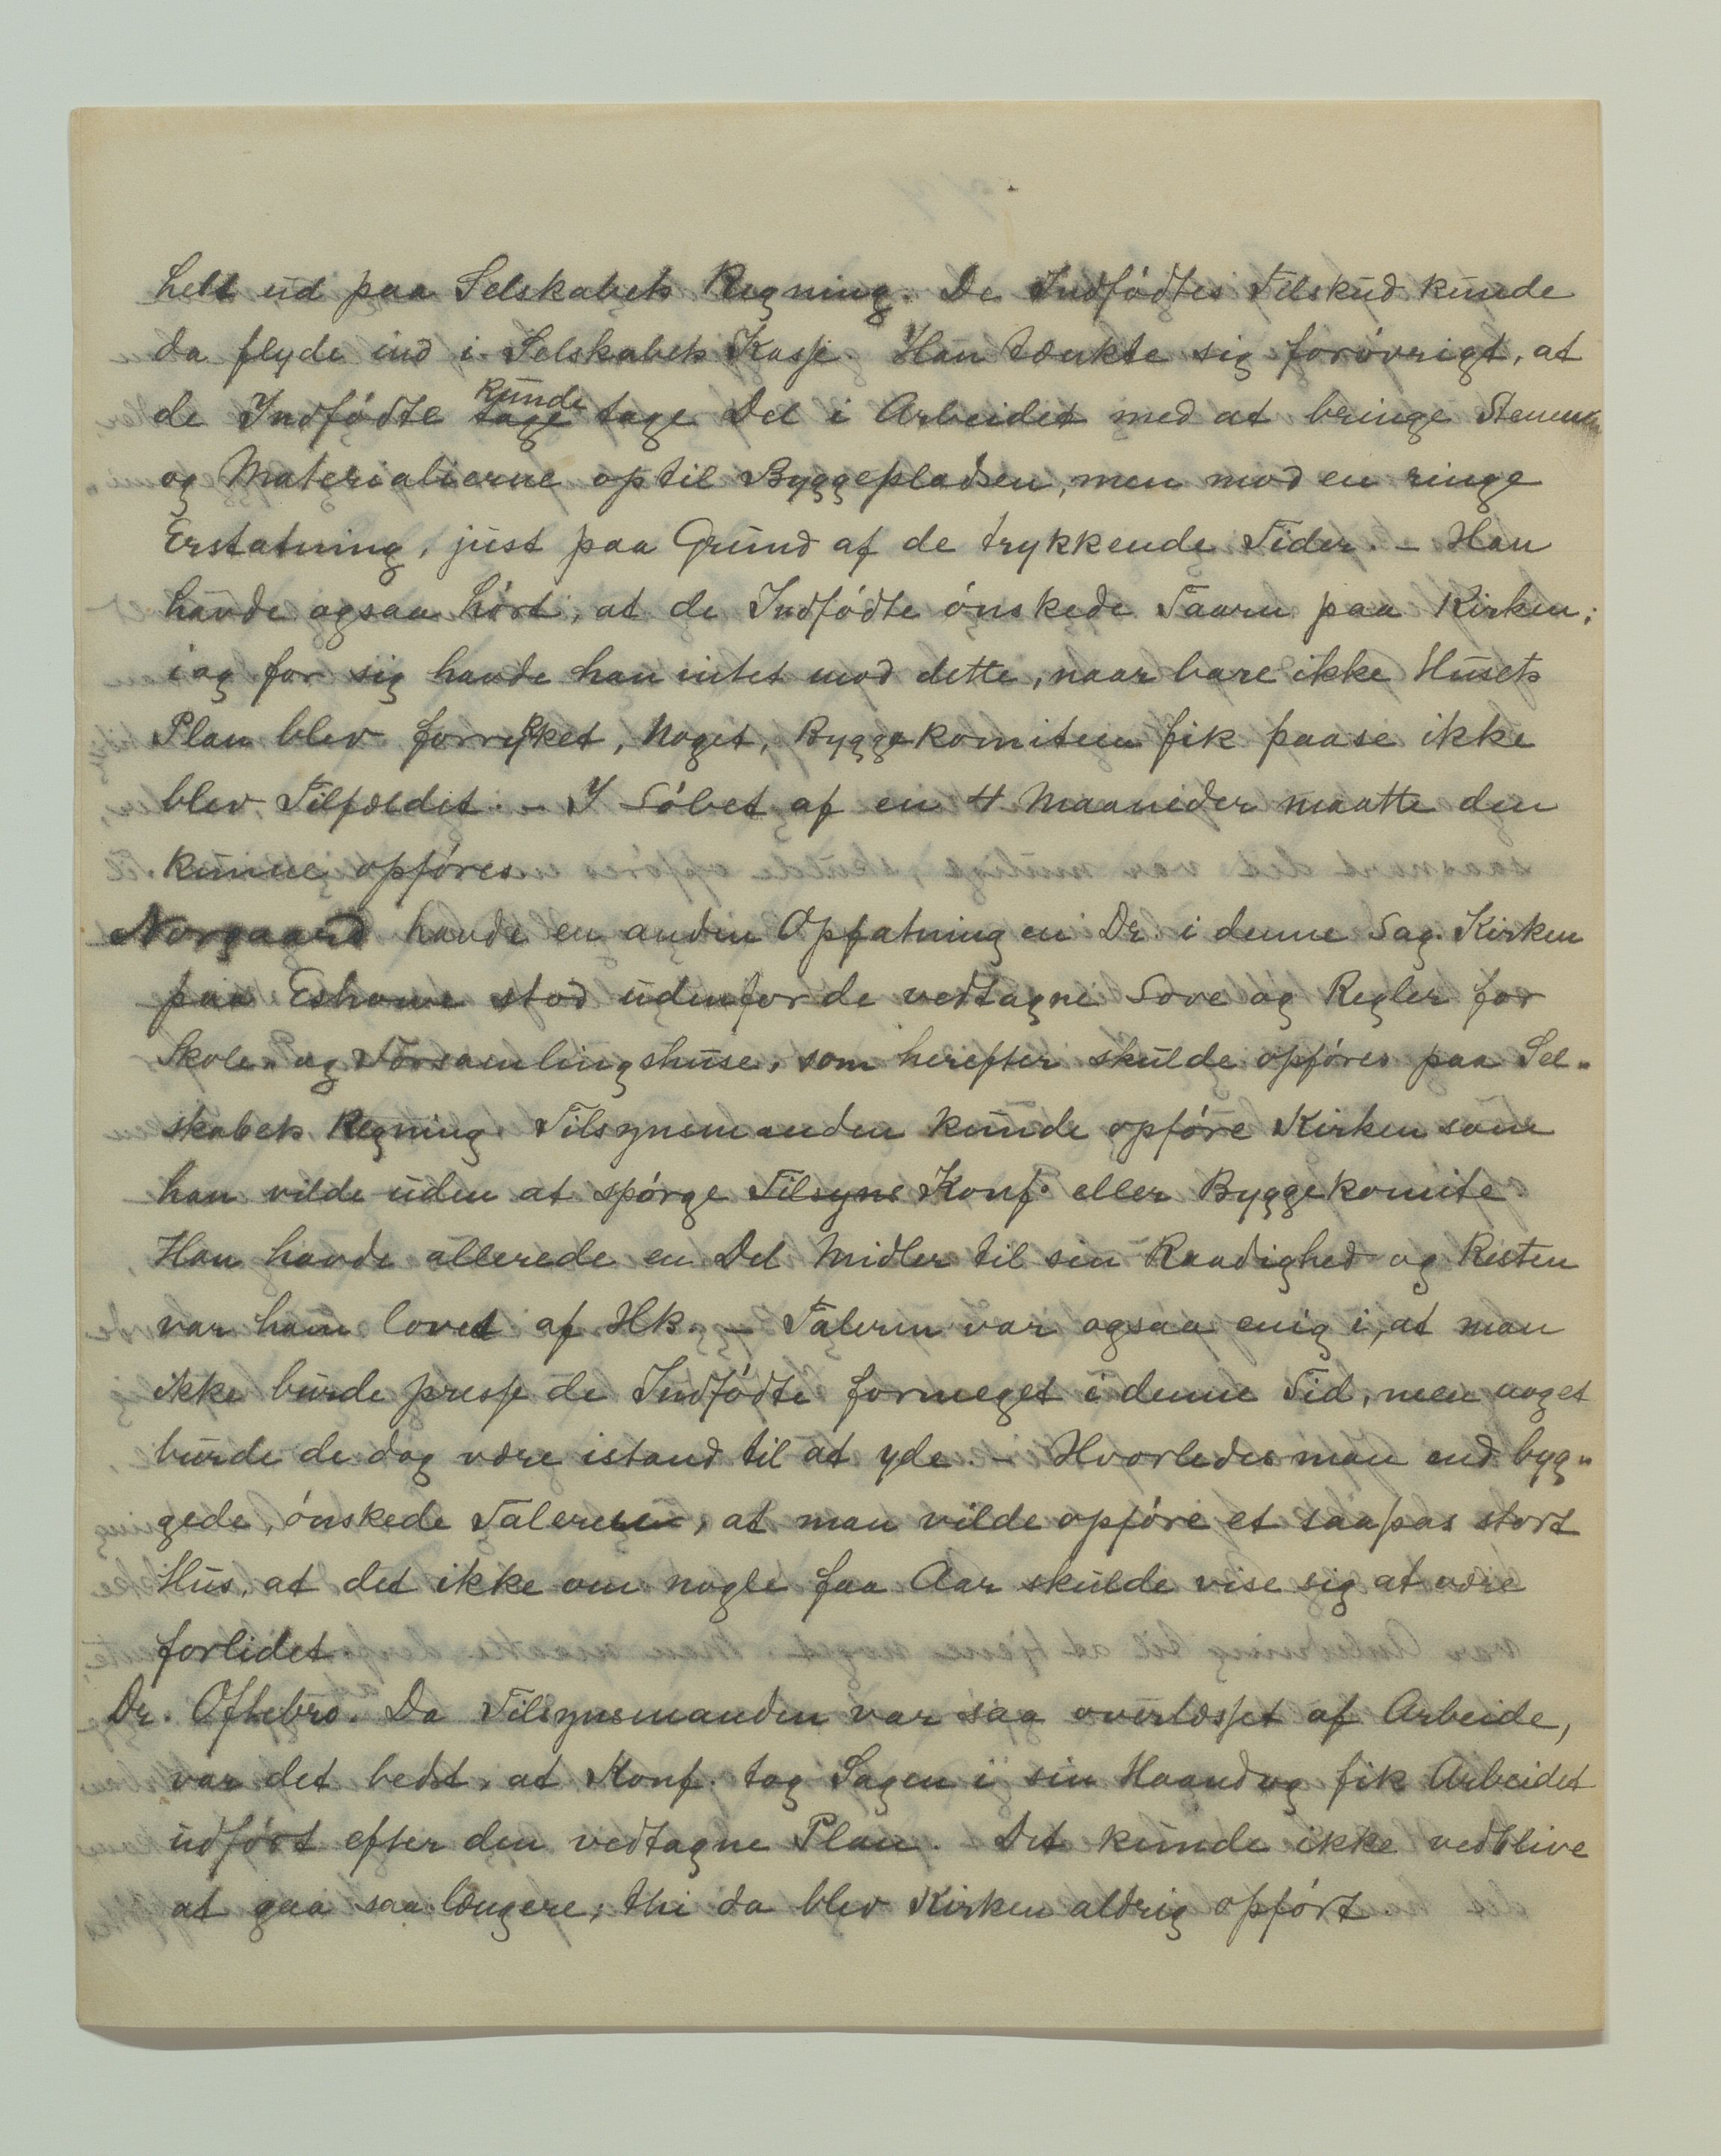 helt ud paa Selskabets Regning. De Indfødtes Tilskud kunde
da flyde ind i Selskabets Kasse. Han tænkte sig forøvrigt, at
de Indfødte kunde tage tage Del i Arbeidet med at bringe Stenene
og Materialierne op til Byggepladsen, men mod en ringe
Erstatning, just paa Grund af de trykkende Tider. – Han
havde ogsaa hørt, at de Indfødte ønskede Taarn paa Kirken;
i og for sig havde han intet mod dette, naar bare ikke Husets
Plan blev forrykket, Noget, Byggekomiteen fik paase ikke
blev Tilfældet. – I Løbet af en 4 Maaneder maatte den
kunne opføres.
Norgaard havde en anden Opfatning en Dr. i denne Sag. Kirken
paa Eshowe stod udenfor de vedtagne Love og Regler for
Skole- og Forsamlingshuse, som herefter skulde opføres paa Sel-
skabets Regning. Tilsynsmanden kunde opføre Kirken som
han vilde uden at spørge Tilsyns Konf. eller Byggekomite.
Han havde allerede en Del Midler til sin Raadighed og Resten
var ham lovet af Hk. – Taleren var ogsaa enig i, at man
ikke burde presse de Indfødte formeget i denne Tid, men noget
burde de dog være istand til at yde. – Hvorledes man end byg-
gede, ønskede Taleren, at man vilde opføre et saapas stort
Hus, at det ikke om nogle faa Aar skulde vise sig at være
forlidet.
Dr. Oftebro. Da Tilsynsmanden var saa overlæsset af Arbeide,
var det bedst, at Konf. tog Sagen i sin Haand og fik Arbeidet
udført efter den vedtagne Plan. Det kunde ikke vedblive
at gaa saa længere; thi da blev Kirken aldrig opført.